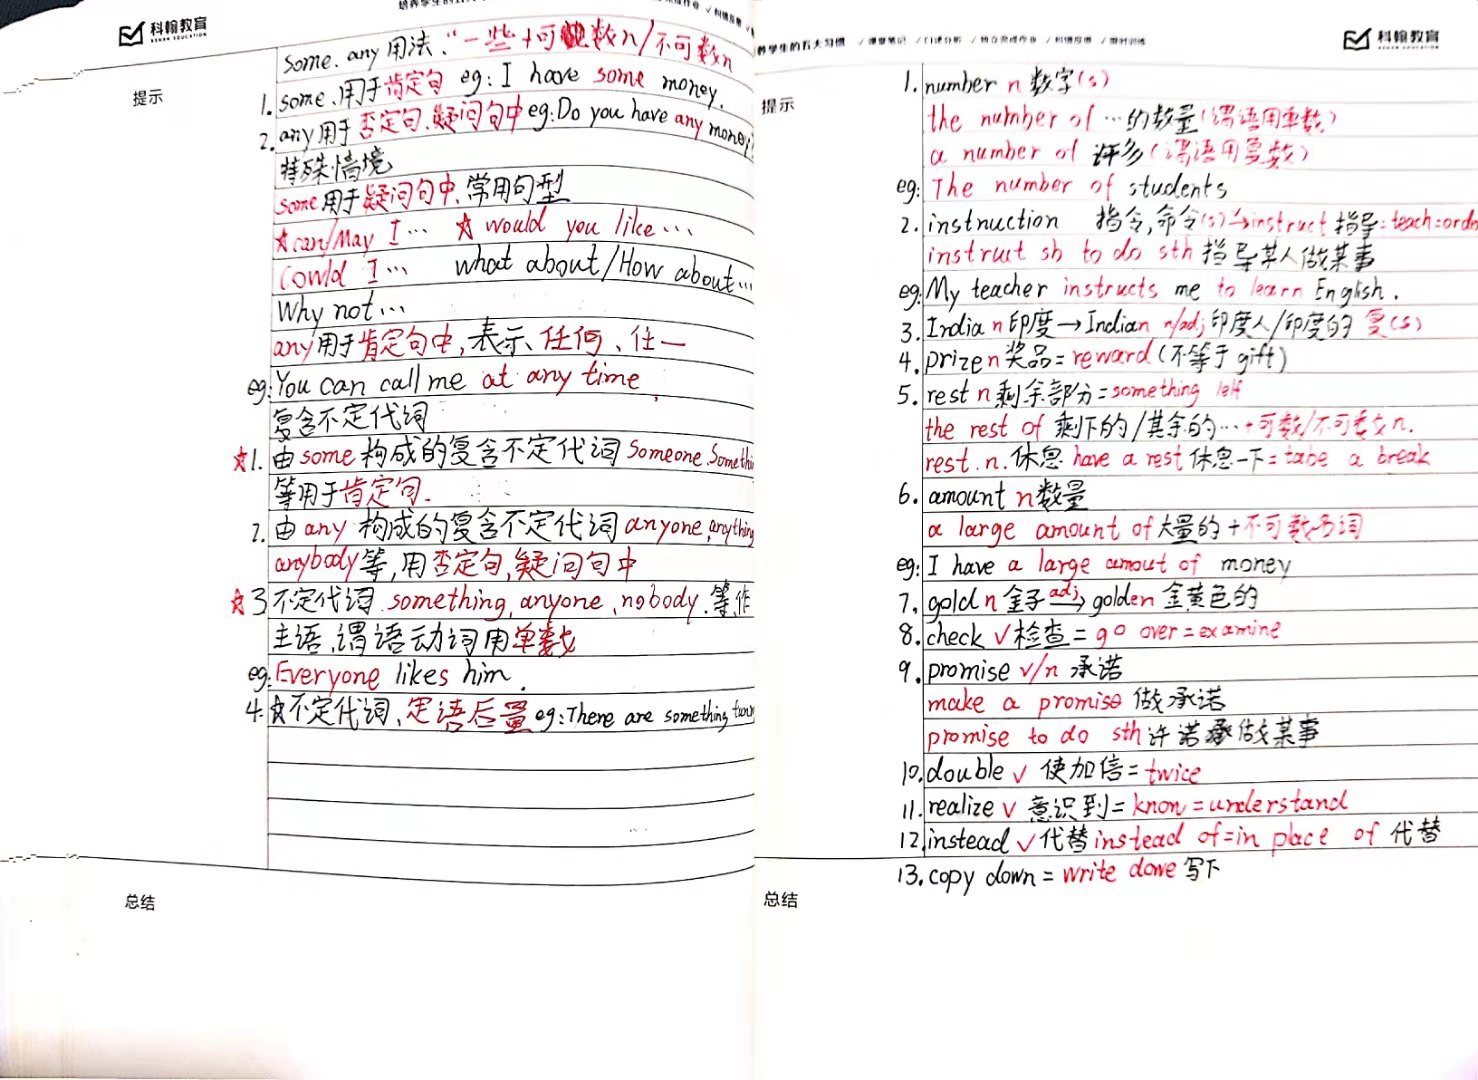 科翰教育
KEHAN EDUCATION
提示
some、any 用法、"一些+可数n/不可数n
1. some、用于肯定句 eg: I have some money.
2. any用于否定句、疑问句中 eg: Do you have any money
特殊情境
some用于疑问句中、常用句型
☆can/May I… ☆ would you like…
Could I… what about/How about…
Why not…
any用于肯定句中，表示、任何、任一
eg: You can call me at any time.
复合不定代词
☆1. 由some构成的复合不定代词 Someone、Someth
等用于肯定句.
2. 由 any 构成的复合不定代词 anyone、anything
anybody等，用否定句，疑问句中
☆3 不定代词 something, anyone、nobody、等作
主语、谓语动词用单数
eg: Everyone likes him.
4. ☆不定代词、定语后置 eg: There are something
总结
养学生的五大习惯 ✓课堂笔记 ✓口述分析 ✓独立完成作业 ✓纠错反思 ✓限时训练
科翰教育
KEHAN EDUCATION
提示
1. number n 数字(s)
the number of …的数量(谓语用单数)
a number of 许多(谓语用复数)
eg: The number of students
2. instruction 指令,命令(s)→instruct 指导=teach=orde
instruct sb to do sth 指导某人做某事
eg: My teacher instructs me to learn English.
3. India n 印度→Indian n/adj 印度人/印度的 复(s)
4. prize n 奖品=reward(不等于gift)
5. rest n 剩余部分=something left
the rest of 剩下的/其余的…+可数/不可数n.
rest. n. 休息 have a rest 休息一下=take a break
6. amount n 数量
a large amount of 大量的+不可数名词
eg: I have a large amout of money
7. gold n 金子 adj→ golden 金黄色的
8. check v 检查=go over=examine
9. promise v/n 承诺
make a promise 做承诺
promise to do sth 许诺承做某事
10. double v 使加倍=twice
11. realize v 意识到=know=understand
12 instead v 代替 instead of=in place of 代替
13. copy down = write dowe 写下
总结